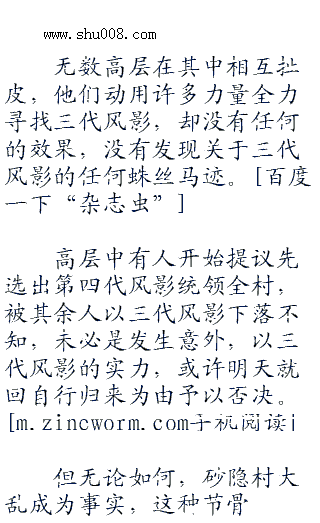 www.shu008.com
无数高层在其中相互扯
皮，他们动用许多力量全力
寻找三代风影，却没有任何
的效果，没有发现关于三代
风影的任何蛛丝马迹。[百度
一下“杂志虫”]
高层中有人开始提议先
选出第四代风影统领全村，
被其余人以三代风影下落不
知，未必是发生意外，以三
代风影的实力，或许明天就
回自行归来为由予以否决。
[m.zincworm.com手机阅读i
但无论如何，砂隐村大
乱成为事实，这种节骨